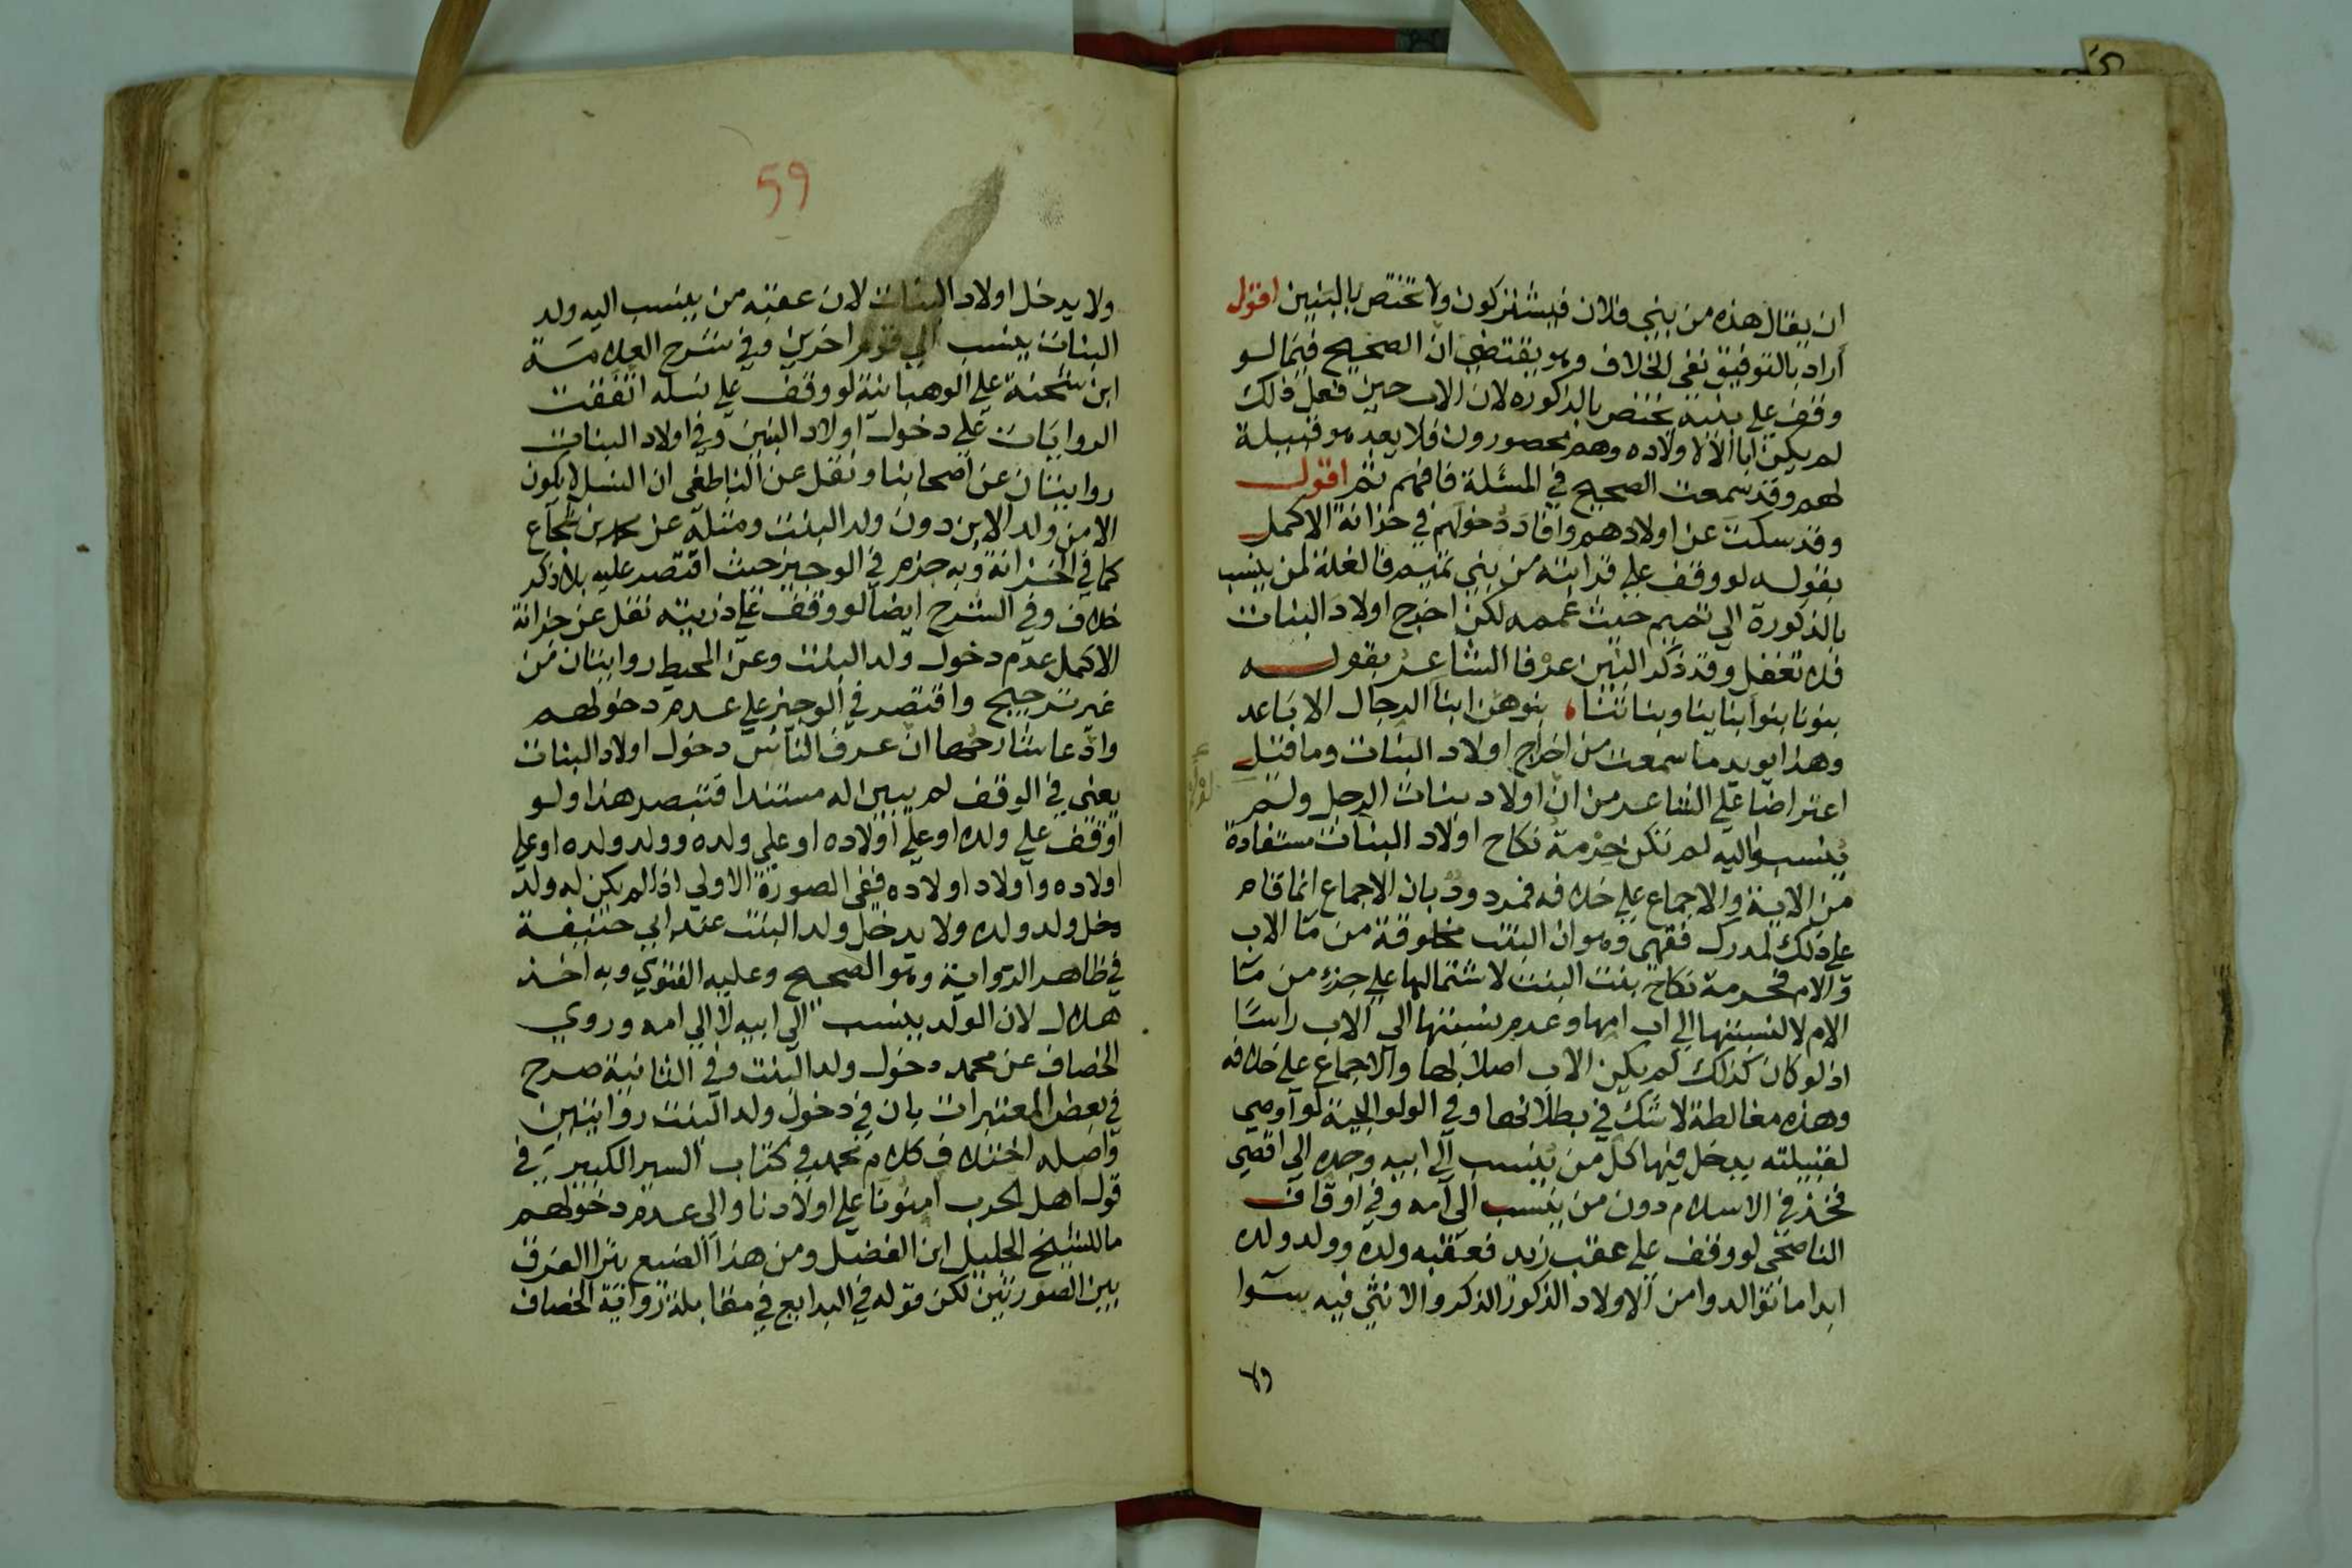 ان يقال هذه من بني فلان فيشتركون ولا تختص بالبنين اقول
اراد بالتوفيق نفى الخلاف وهو يقتضي ان الصحيح فيما لو
وقف علي بنيه يختص بالذكوره لان الاب حين فعل ذلك
لم يكن ابا الا لاولاده وهم محصورون فلا يعد هو قبيلة
لهم وقد سمعت الصحيح في المسئلة فافهم ثم اقول
وقد سكت عن اولادهم وافاد دخولهم في خزانة الاكمل
بقوله لو وقف علي قرابته من بني تميم فالغلة لمن ينسب
بالذكورة الي تميم حيث عممه لكن اخرج اولاد البنات
فلا تغفل وقد ذكر البنين عرفا الشاعر بقوله
بنونا بنوا ابناينا وبناتنا، بنوهن ابنا الرجال الاباعد
وهذا يويد ما سمعت من اخراج اولاد البنات وما قيل
اعتراضا علي الشاعر من ان اولاد بنات الرجل ولم
ينسبوا اليه لم تكن حرمة نكاح اولاد البنات مستفادة
من الاية والاجماع علي خلافه فمردود بان الاجماع انما قام
علي ذلك لمدرك فقهى وهو ان البنت مخلوقة من مآ الاب
والام فحرمة نكاح بنت البنت لاشتمالها علي جزء من مآ
الام لا لنسبتها الي اب امها وعدم نسبتها الي الاب راسًا
اذ لو كان كذلك لم يكن الاب اصلا لها والاجماع علي خلافه
وهذه مغالطة لا شك في بطلانها وفي الولوالجية لو اوصي
لقبيلته يدخل فيها كل من ينسب الي ابيه وجده الي اقصي
فخذ في الاسلام دون من ينسب الي امه وفي اوقاف
الناصحى لو وقف علي عقب زيد فعقبه ولده وولد ولده
ابدا ما توالدوا من الاولاد الذكور الذكر والانثي فيه سوآ
ولا
59
ولا يدخل اولاد البنات لان عقبه من ينسب اليه ولد
البنات ينسب الي قوم اخرين وفي شرح العلامة
ابن شحنة علي الوهبانية لو وقف علي نسله اتفقت
الروايات علي دخول اولاد البنين وفي اولاد البنات
روايتان عن اصحابنا ونقل عن الناطفى ان النسل لا يكون
الا من ولد الابن دون ولد البنت ومثله عن محمد بن شجاع
كما في الخزانة وبه جزم في الوجيز حيث اقتصر عليه بلا ذكر
خلاف وفي الشرح ايضا لو وقف علي ذريته نقل عن خزانة
الاكمل عدم دخول ولد البنت وعن المحيط روايتان من
غير ترجيح واقتصر في الوجيز علي عدم دخولهم
وادعا شارحها ان عرف الناس دخول اولاد البنات
يعني في الوقف لم يبين له مستندا فتبصر هذا ولو
اوقف علي ولده او علي اولاده او علي ولده وولد ولده او علي
اولاده واولاد اولاده ففى الصورة الاولي اذا لم يكن له ولد
دخل ولد ولده ولا يدخل ولد البنت عند ابي حنيفة
في ظاهر الرواية وهو الصحيح وعليه الفتوي وبه اخذ
هلال لان الولد ينسب الي ابيه لا الي امه وروي
الخصاف عن محمد دخول ولد البنت وفي الثانية صرح
في بعض المعتبرات بان في دخول ولد البنت روايتين
واصله اختلاف كلام محمد في كتاب السير الكبير في
قول اهل الحرب امنونا علي اولادنا والي عدم دخولهم
مال الشيخ الجليل ابن الفضل ومن هذا الصنيع يترا الفرق
بين الصورتين لكن قوله في البدايع في مقابلة رواية الخصاف